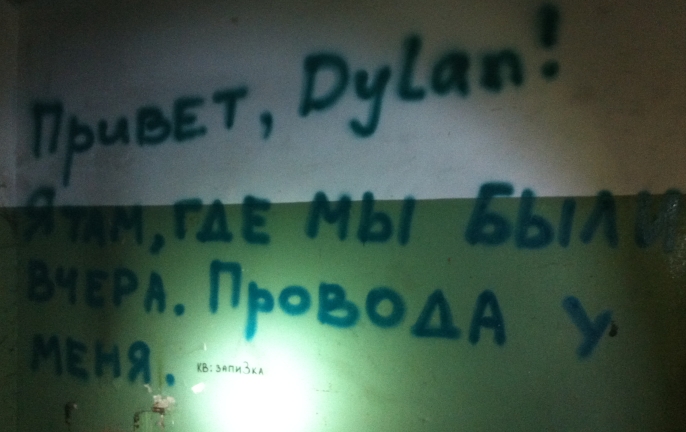 Привет, Dylan!
Я там, где мы были
вчера. Провода у
меня.
КВ: ЗАПИЗКА